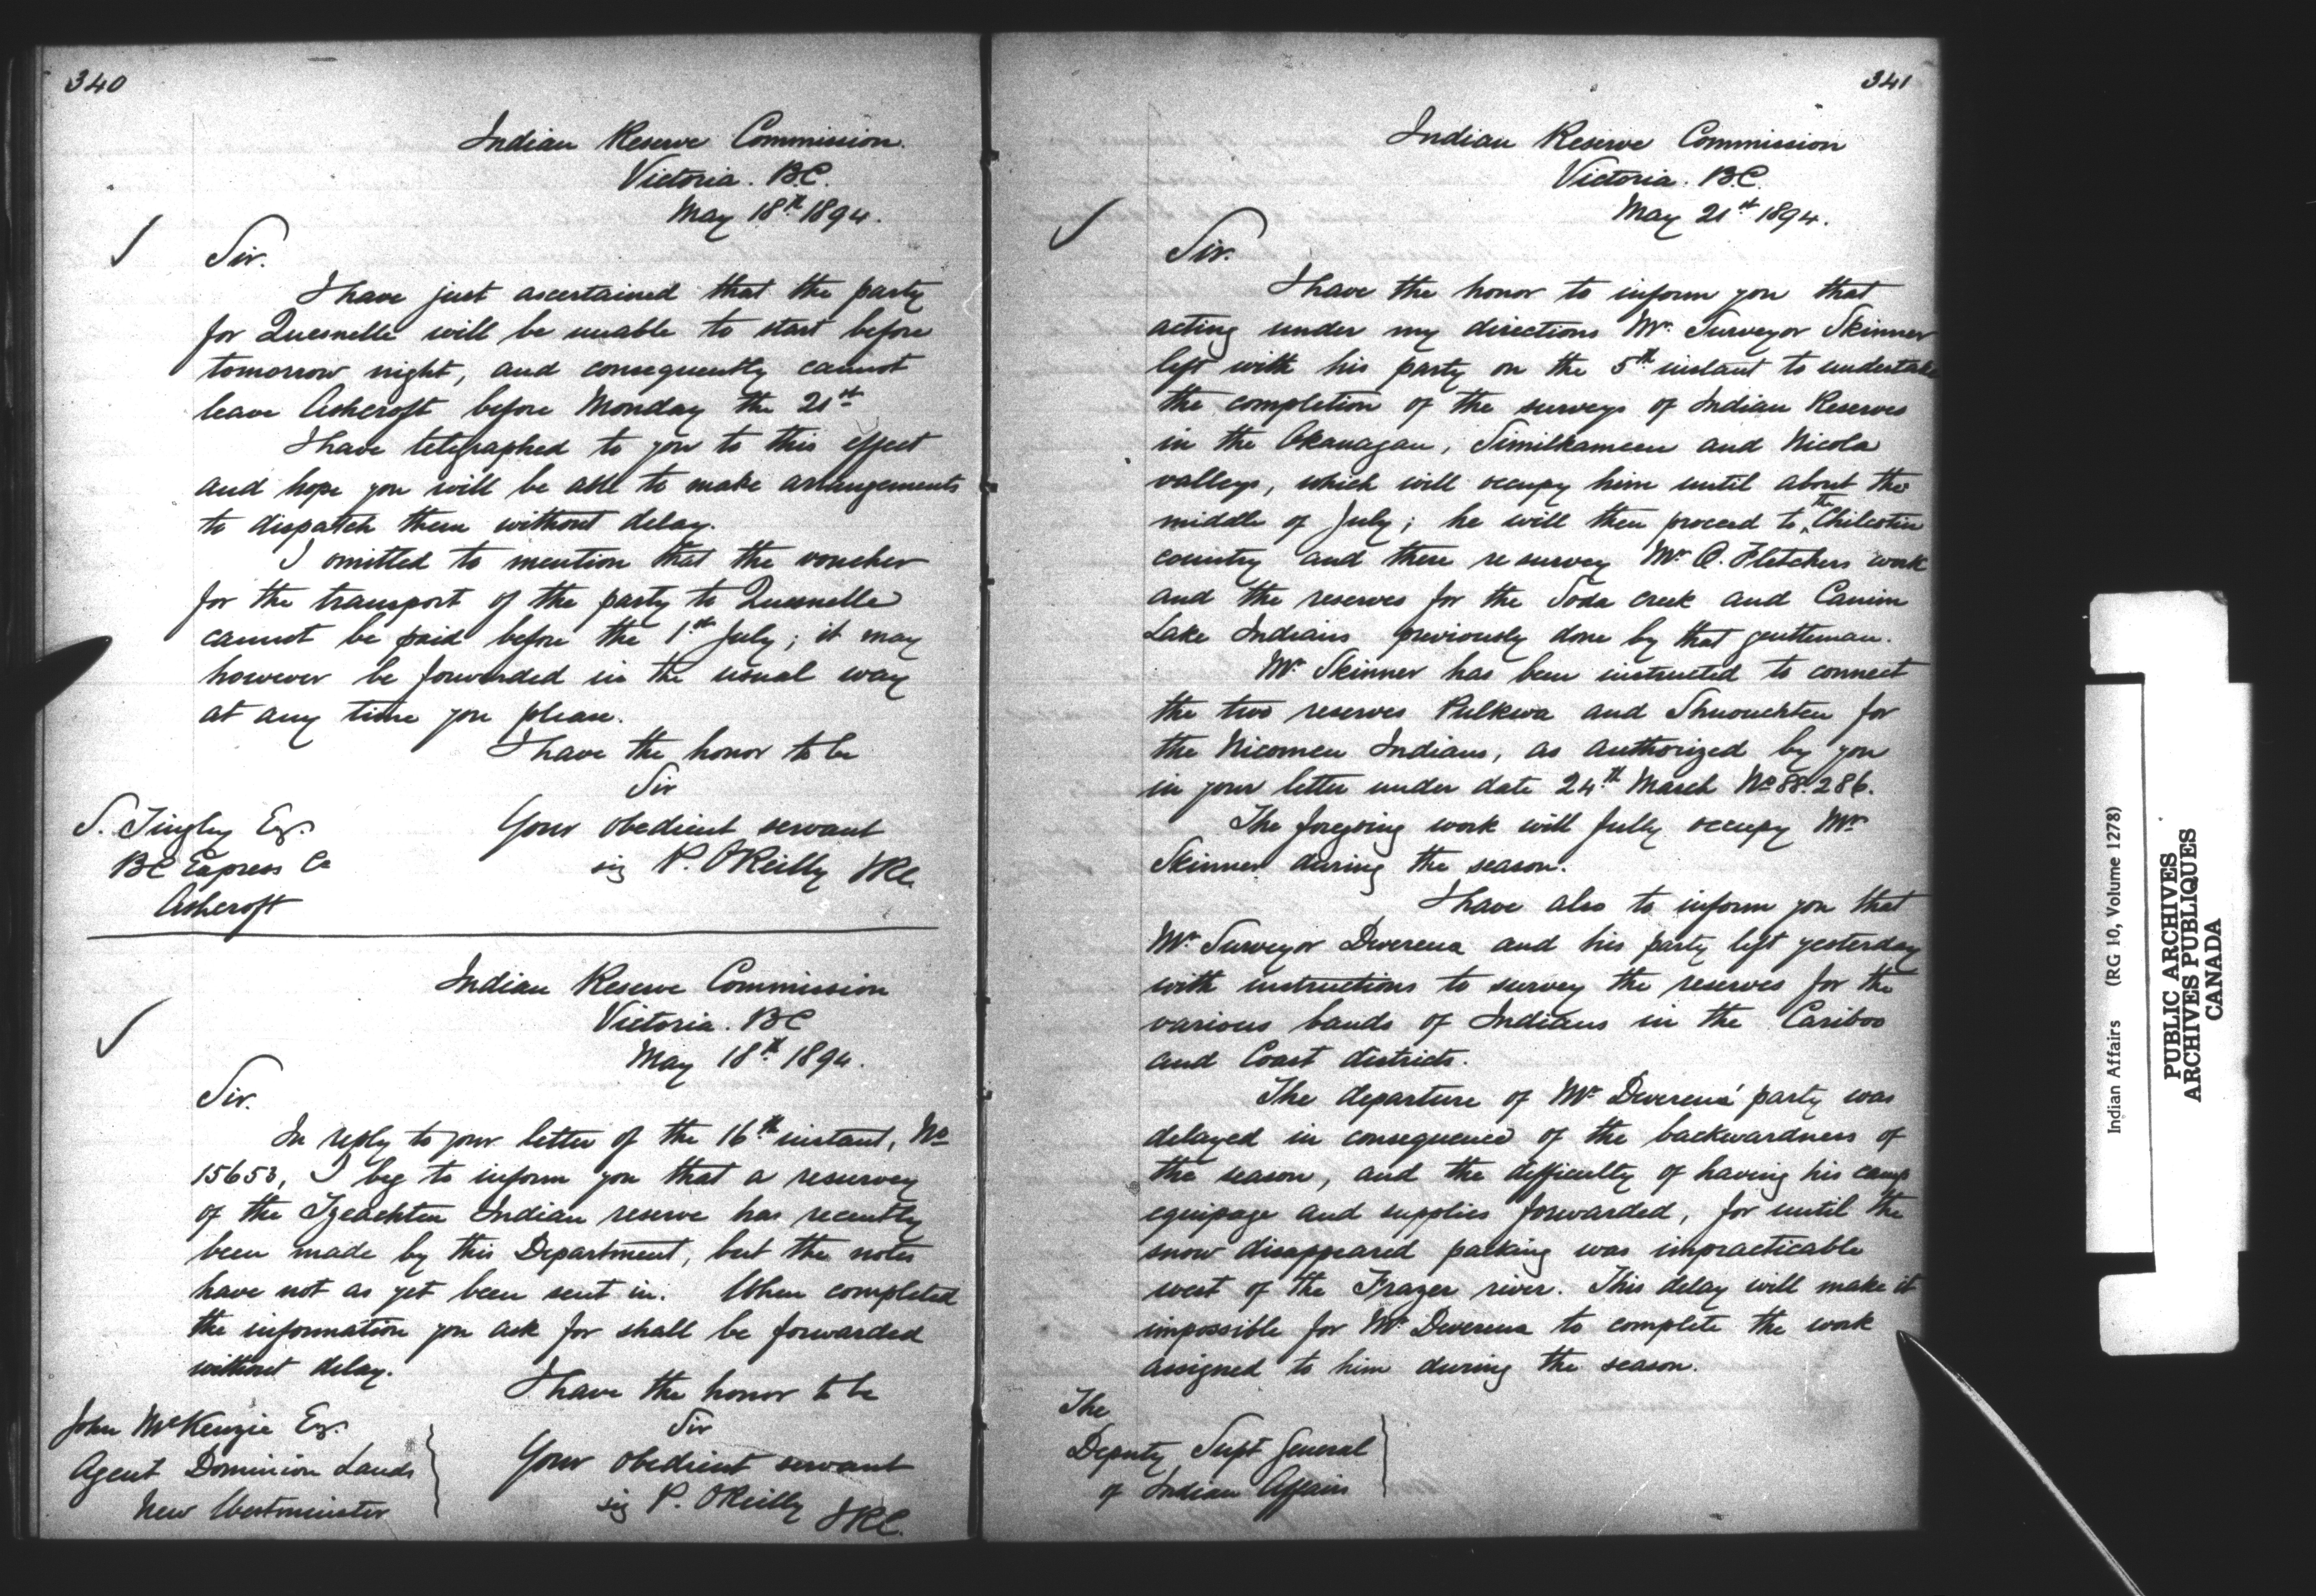 340
Indian Reserve Commission.
Victoria. B.C.
May 18th 1894.
Sir.
I have just ascertained that the party
for Quesnelle will be unable to start before
tomorrow night, and consequently cannot
leave Ashcroft before Monday the 21st
I have telegraphed to you to this effect
and hope you will be able to make arrangements
to dispatch them without delay.
I omitted to mention that the voucher
for the transport of the party to Quesnelle
cannot be paid before the 1st July; it may
however be forwarded in the usual way
at any time you please.
I have the honor to be
Sir
Your obedient servant
sig P. O'Reilly IRC.
S. Tingley Esq.
BC Express Co
Ashcroft
Indian Reserve Commission
Victoria. BC
May 18th 1894.
Sir.
In reply to your letter of the 16th instant, No
15653, I beg to inform you that a resurvey
of the Tzeachten Indian reserve has recently
been made by this Department, but the notes
have not as yet been sent in. When completed
the information you ask for shall be forwarded
without delay.
I have the honor to be
Sir
Your obedient servant
sig P. O'Reilly
IRC.
John McKenzie Esq.
Agent Dominion Lands
New Westminster
341
Indian Reserve Commission
Victoria. B.C.
May 21st 1894.
Sir.
I have the honor to inform you that
acting under my directions Mr. Surveyor Skinner
left with his party on the 5th instant to undertake
the completion of the surveys of Indian Reserves
in the Okanagan, Similkameen and Nicola
valleys, which will occupy him until about the
middle of July; he will then proceed to the Chilcotin
country and there resurvey Mr. Fletchers work
and the reserves for the Soda Creek and Canim
Lake Indians previously done by that gentleman.
Mr. Skinner has been instructed to connect
the two reserves Pulkwa and Shuouchten for
the Nicomen Indians, as authorized by you
in your letter under date 24th March No 88.286.
The foregoing work will fully occupy Mr
Skinner during the season.
I have also to inform you that
Mr. Surveyor Devereux and his party left yesterday
with instructions to survey the reserves for the
various bands of Indians in the Cariboo
and Coast districts.
The departure of Mr Devereux' party was
delayed in consequence of the backwardness of
the season, and the difficulty of having his camp
equipage and supplies forwarded, for until the
snow disappeared packing was impracticable
west of the Frazer river. This delay will make it
impossible for Mr. Devereux to complete the work
assigned to him during the season.
The
Deputy Supt General
of Indian Affairs
Indian Affairs (RG 10, Volume 1278)
PUBLIC ARCHIVES
ARCHIVES PUBLIQUES
CANADA